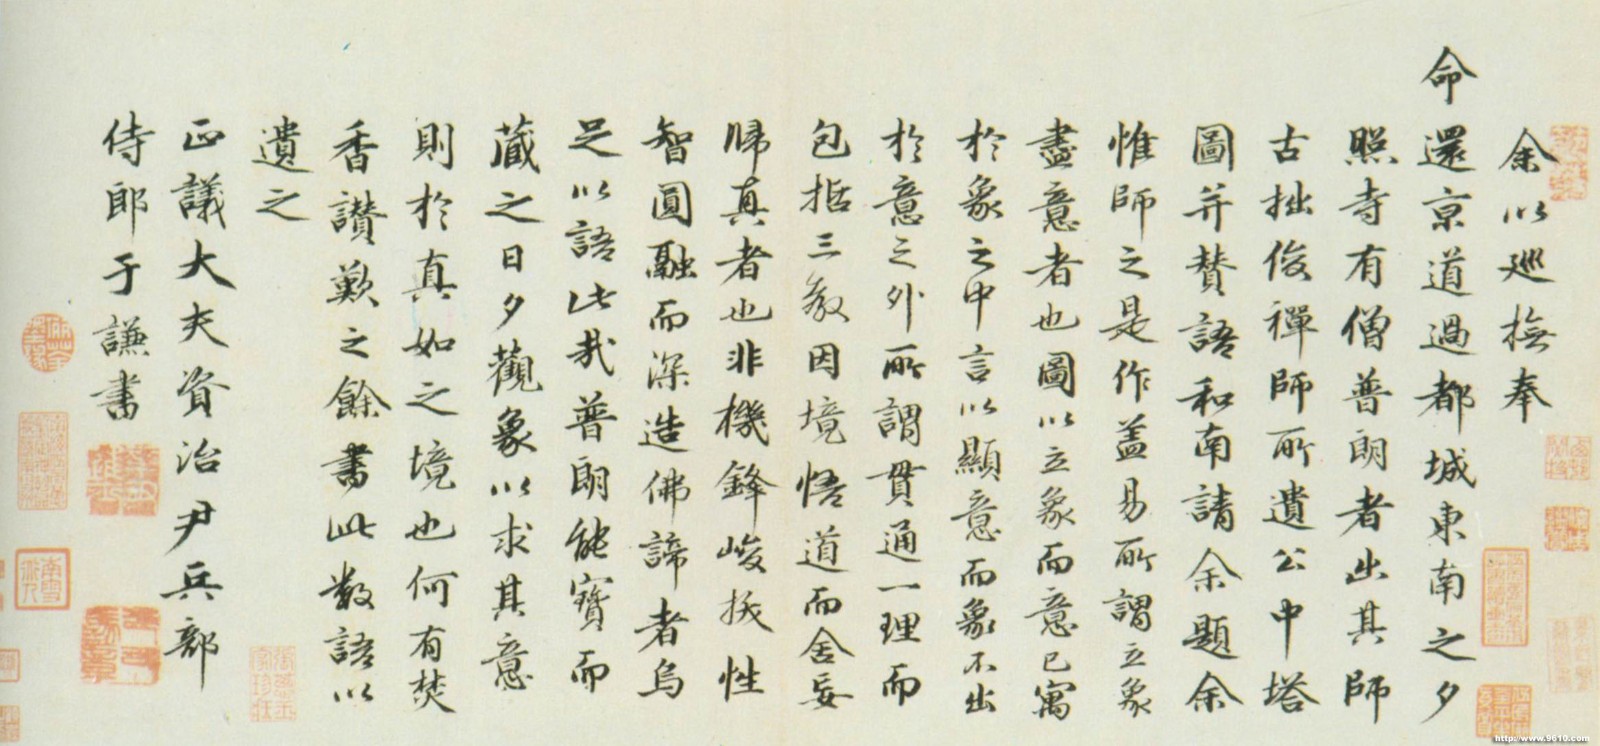 余以廵撫奉
命還京道過都城東南之夕
照寺有僧普朗者出其師
古拙俊禪師所遺公中塔
圖并賛語和南請余題余
惟師之是作盖易所謂立象
盡意者也圖以立象而意已寓
於象之中言以顯意而象不出
於意之外所謂貫通一理而
包括三教因境悟道而舍妄
歸真者也非機鋒峻㧞性
智圓融而深造佛諦者烏
足以語此哉普朗能寶而
藏之日夕觀象以求其意
則於真如之境也何有焚
香讃歎之餘書此數語以
遺之
正議大夫資治尹兵部
侍郎于謙書
http://www.9610.com